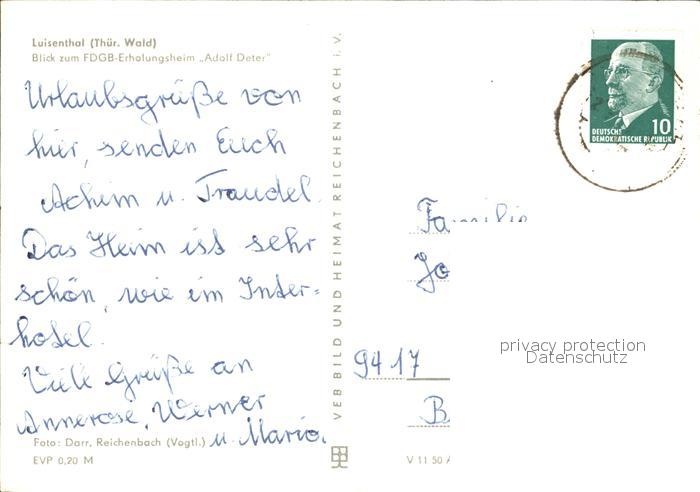 Luisenthal (Thür. Wald)
Blick zum FDGB-Erholungsheim „Adolf Deter"
Urlaubsgrüße von
hier, senden Euch
Achim u. Traudel.
Das Heim ist sehr
schön, wie im Inter=
hotel.
Viele Grüße an
Annerose, Werner
u. Mario.
Foto: Darr, Reichenbach (Vogtl.)
EVP 0,20 M
VEB BILD UND HEIMAT REICHENBACH i. V.
V 11 50
10
DEUTSCHE
DEMOKRATISCHE REPUBLIK
Familie
Jo
9417
B
privacy protection
Datenschutz